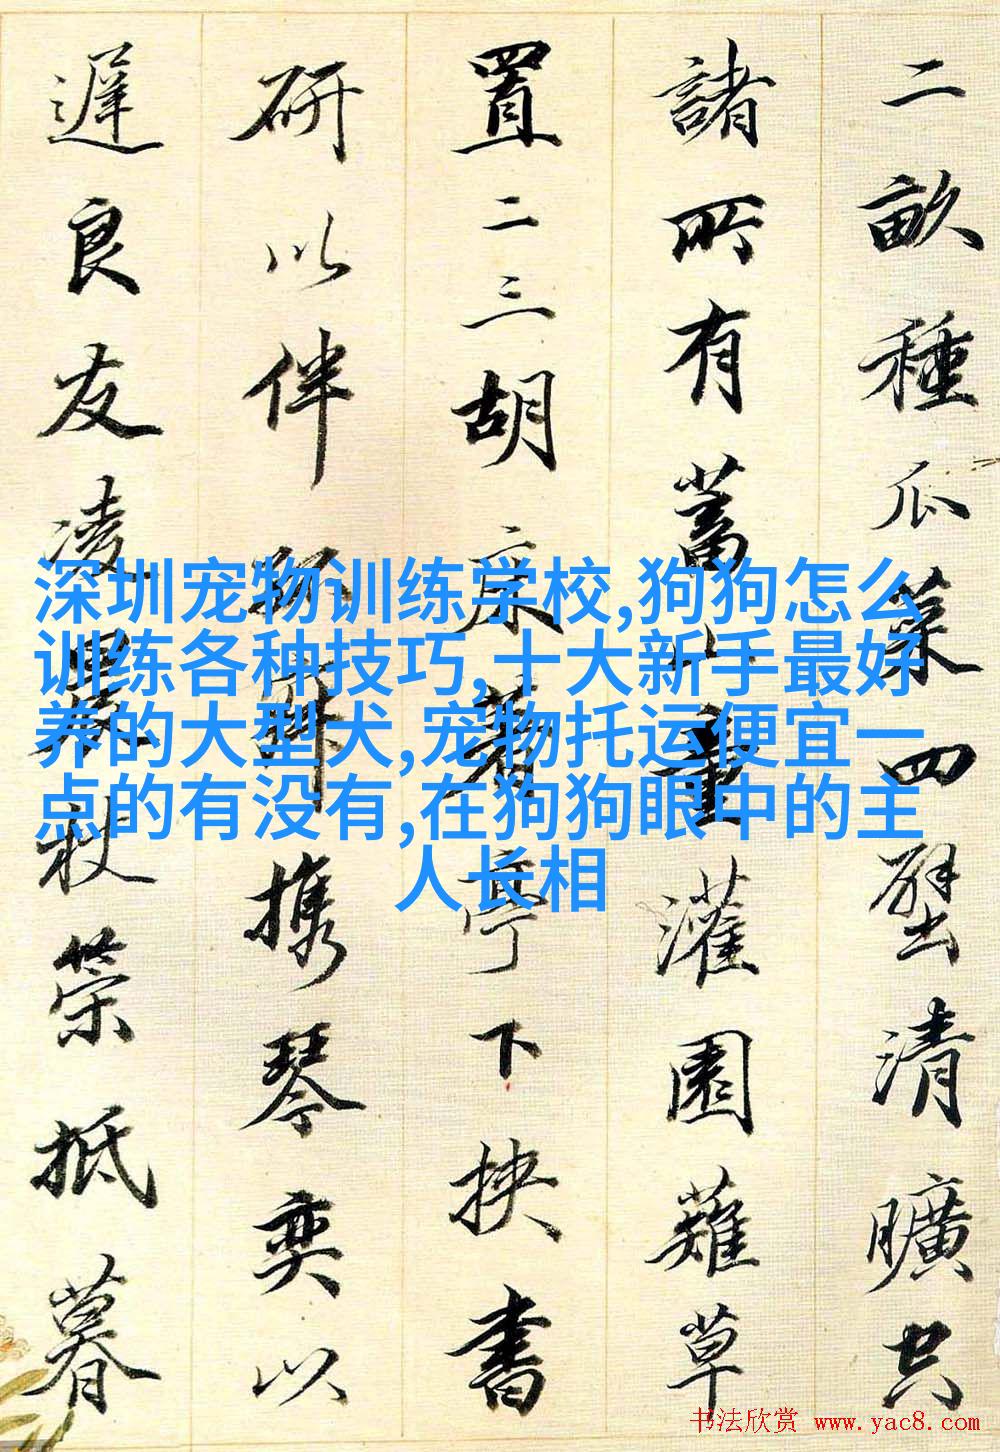 二畝種瓜菜四壁清曠共
諸所有蓄山童灌園薙草
置二三胡床著亭下挾書
研以伴孤寂攜琴奕以
遲良友凌晨杖策抵暮
深圳宠物训练学校,狗狗怎么
训练各种技巧,十大新手最好
养的大型犬,宠物托运便宜一
点的有没有,在狗狗眼中的主
人长相
书法欣赏 www.yac8.com